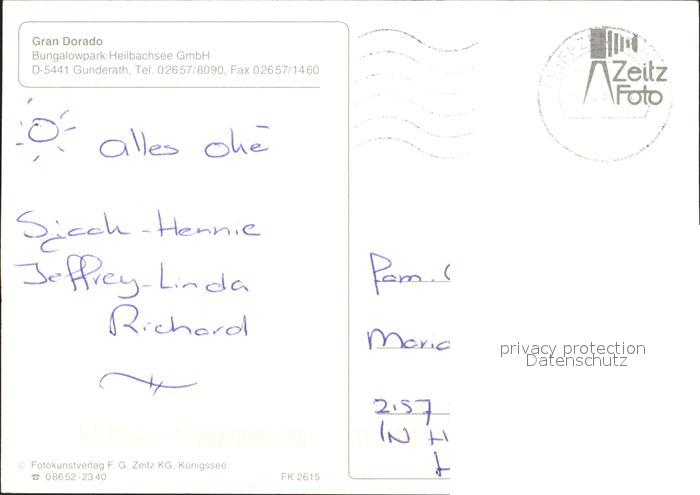 Gran Dorado
Bungalowpark Heilbachsee GmbH
D-5441 Gunderath, Tel. 02657/8090, Fax 02657/1460
Zeitz
Foto
alles okē
Sjaak - Hennie
Jeffrey - Linda
Richard
Fam.
2157
IN H
privacy protection
Datenschutz
© Fotokunstverlag F. G. Zeitz KG, Königssee
☎ 08652-2340
FK 2615